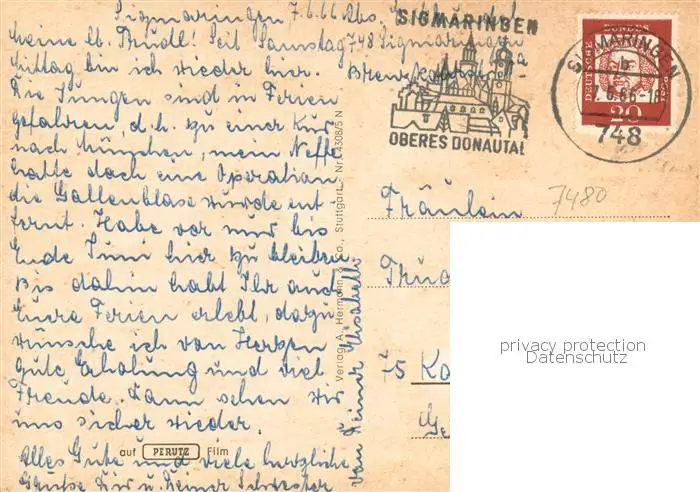 Sigmaringen 7.6.66 Abs.
748 Sigmaringen
Meine lb. Trudl! Seit Samstag
Mittag bin ich wieder hier.
Die Jungen sind in Ferien
gefahren, d.h. zu einer Kur
nach München, mein Neffe
hatte doch eine Operation
die Gallenblase wurde ent-
fernt. Habe vor nur bis
Ende Juni hier zu bleiben
bis dahin habt Ihr auch
Eure Ferien erlebt, dazu
wünsche ich von Herzen
gute Erholung und viel
Freude. Dann sehen wir
uns sicher wieder.
Alles Gute und viele herzliche
Grüße Dir u. Deiner Schwester
von Deiner Elisabeth
auf PERUTZ Film
Verlag A. Hermann, Stuttgart - Nr. L 4308/5 N
SIGMARINGEN
OBERES DONAUTAL
SIGMARINGEN
b
6.66-18
748
DEUTSCHE BUNDESPOST
20
7480
Fräulein
75 Ka
privacy protection
Datenschutz